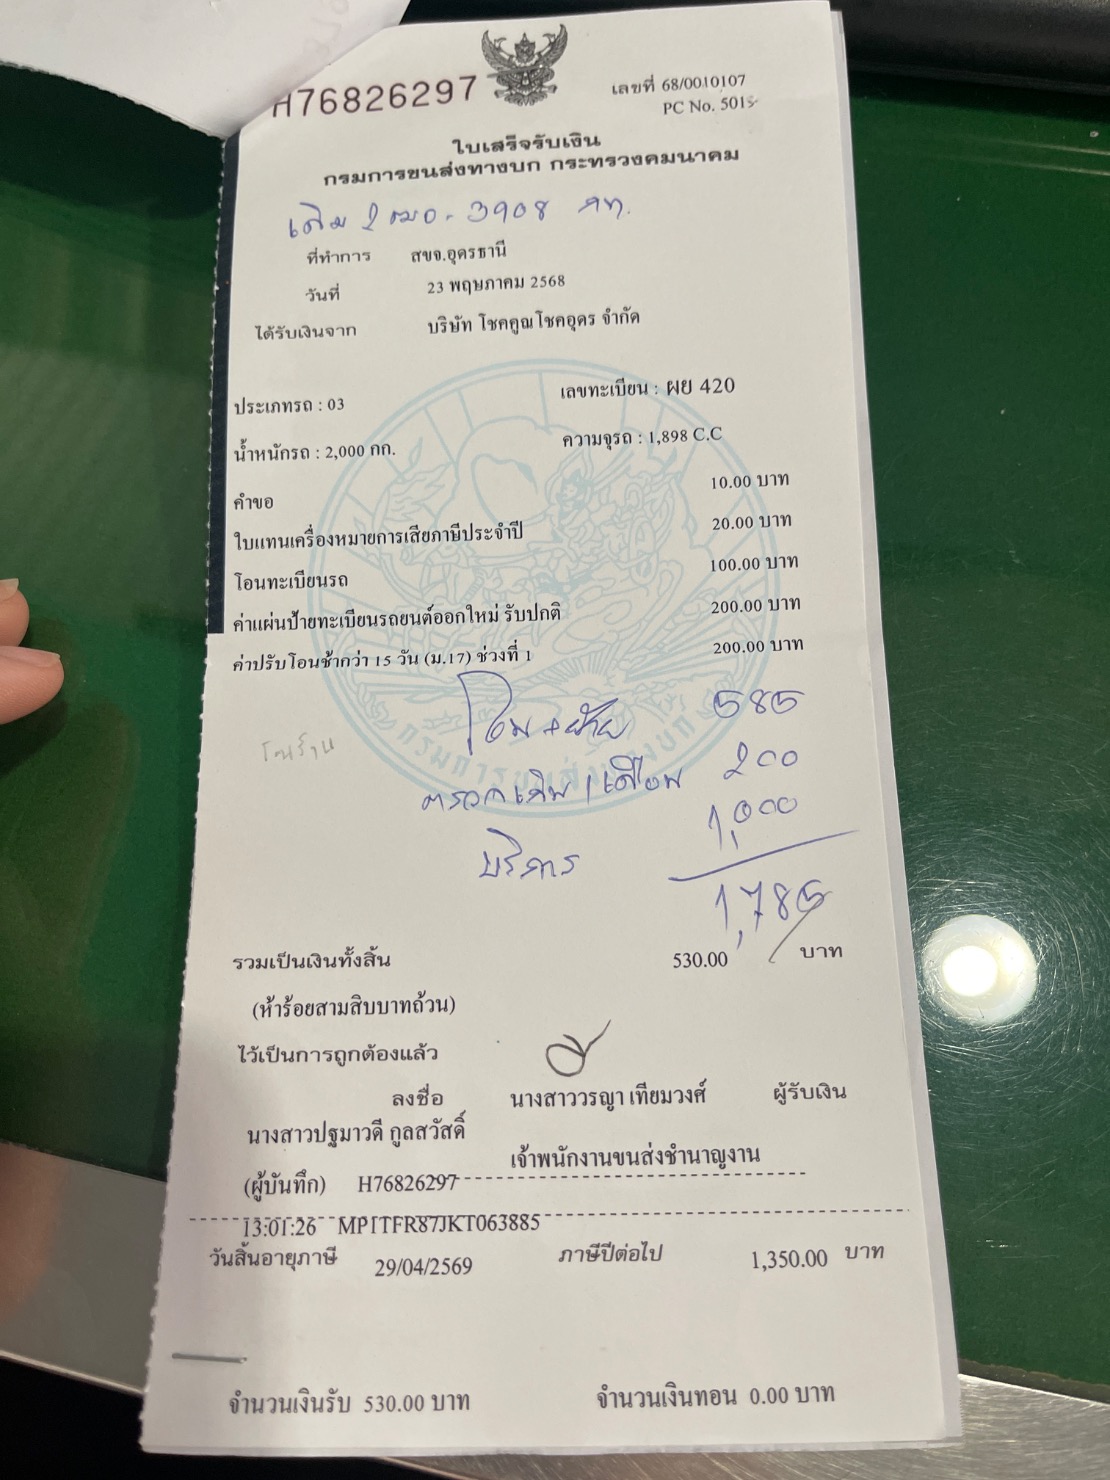 H76826297
เลขที่ 68/0010107
PC No. 5015
ใบเสร็จรับเงิน
กรมการขนส่งทางบก กระทรวงคมนาคม
เดิม 2ฒอ-3908 กท.
ที่ทำการ สขจ.อุดรธานี
วันที่ 23 พฤษภาคม 2568
ได้รับเงินจาก บริษัท โชคคูณโชคอุดร จำกัด
ประเภทรถ : 03 เลขทะเบียน : ผย 420
น้ำหนักรถ : 2,000 กก. ความจุรถ : 1,898 C.C
คำขอ 10.00 บาท
ใบแทนเครื่องหมายการเสียภาษีประจำปี 20.00 บาท
โอนทะเบียนรถ 100.00 บาท
ค่าแผ่นป้ายทะเบียนรถยนต์ออกใหม่ รับปกติ 200.00 บาท
ค่าปรับโอนช้ากว่า 15 วัน (ม.17) ช่วงที่ 1 200.00 บาท
โอน+ย้าย 585
200
บริการ 1,000
1,785
กรมการขนส่งทางบก
รวมเป็นเงินทั้งสิ้น 530.00 บาท
(ห้าร้อยสามสิบบาทถ้วน)
ไว้เป็นการถูกต้องแล้ว
ลงชื่อ นางสาววรญา เทียมวงศ์ ผู้รับเงิน
นางสาวปฐมาวดี กูลสวัสดิ์
เจ้าพนักงานขนส่งชำนาญงาน
(ผู้บันทึก) H76826297
13:01:26 MP1TFR87JKT063885
วันสิ้นอายุภาษี 29/04/2569 ภาษีปีต่อไป 1,350.00 บาท
จำนวนเงินรับ 530.00 บาท จำนวนเงินทอน 0.00 บาท